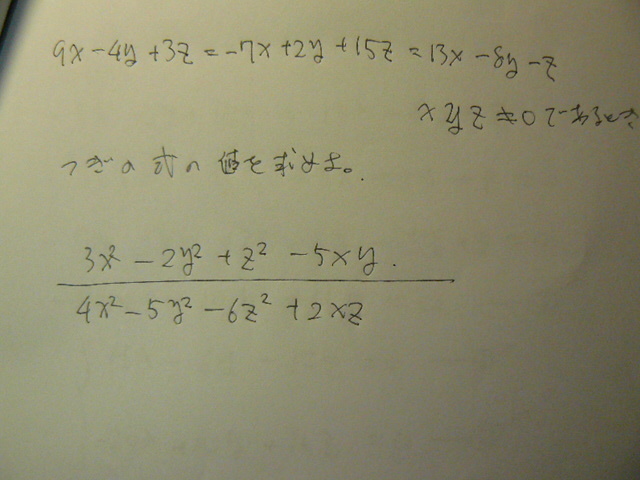 9x-4y+3z=-7x+2y+15z=13x-8y-z
xyz≠0であるとき
つぎの式の値を求めよ。
3x²-2y²+z²-5xy.
4x²-5y²-6z²+2xz